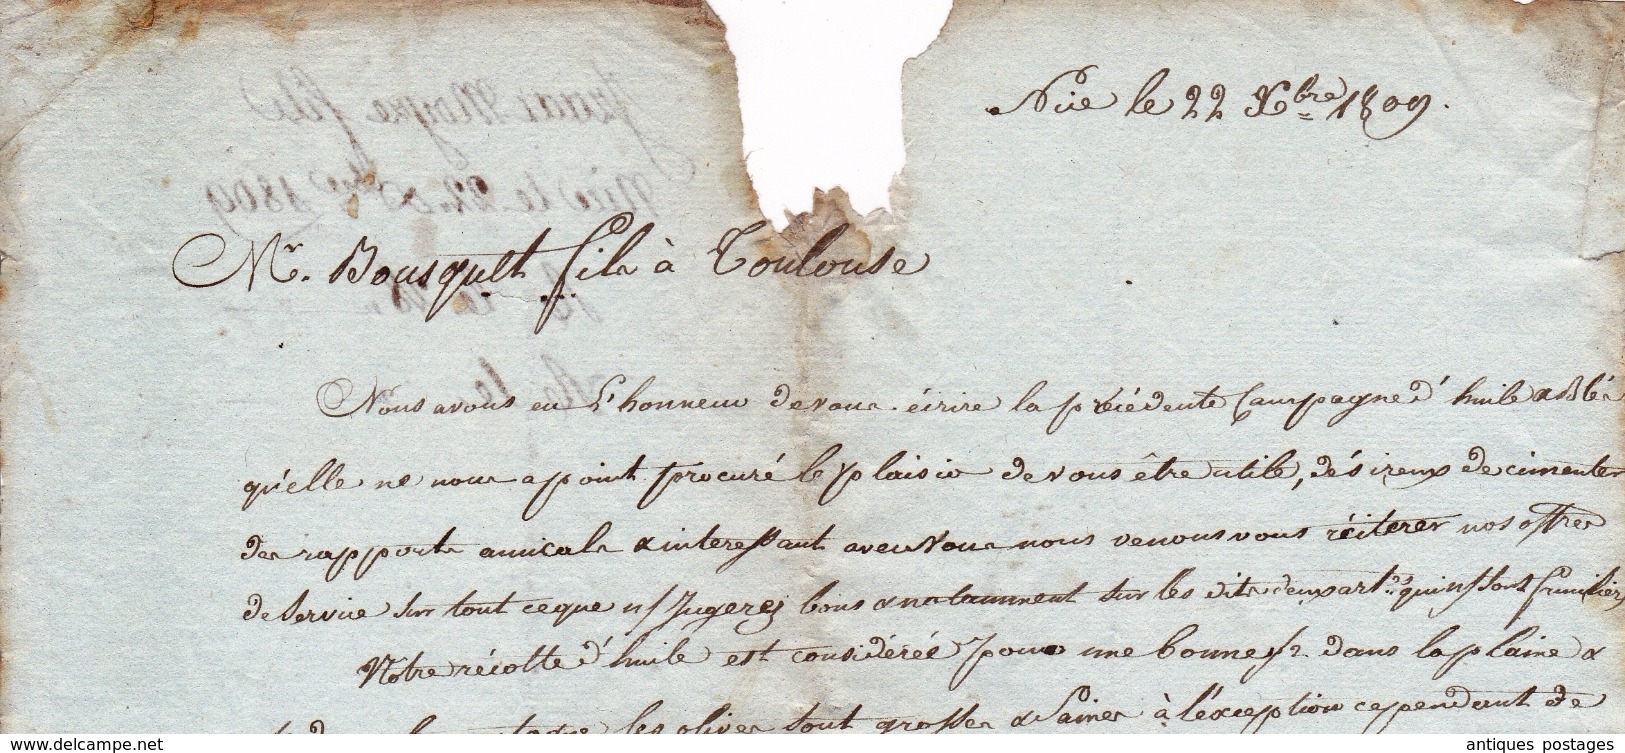 Nice le 22 Xbre 1809.
Mr. Bousquet fils à Toulouse
Nous avons eu L'honneur de vous écrire la précédente Campagne d'huile & Blés
qu'elle ne nous a point procuré le plaisir de vous être utile, désireux de cimenter
des rapports amicals & interessant avec Vous nous venons vous réiterer nos offres
de Service sur tout ce que Jugerez bons & notamment sur les dits deux art.es qui ns sont familiers
Notre récolte d'huile est considérée pour une bonne dans la plaine &
les olives sont grosses & Saines à l'exception cependant de
antiques postages